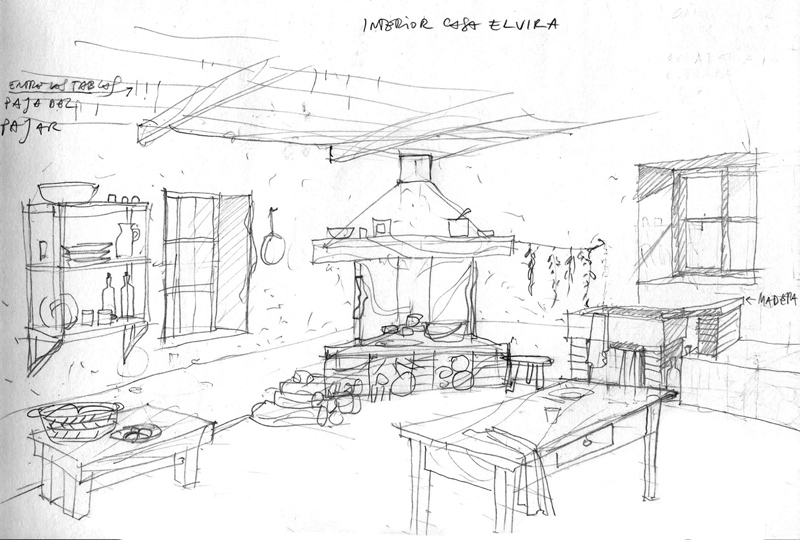 INTERIOR CASA ELVIRA
ENTRE LAS TABLAS
PAJA DEL
PAJAR
← MADERA